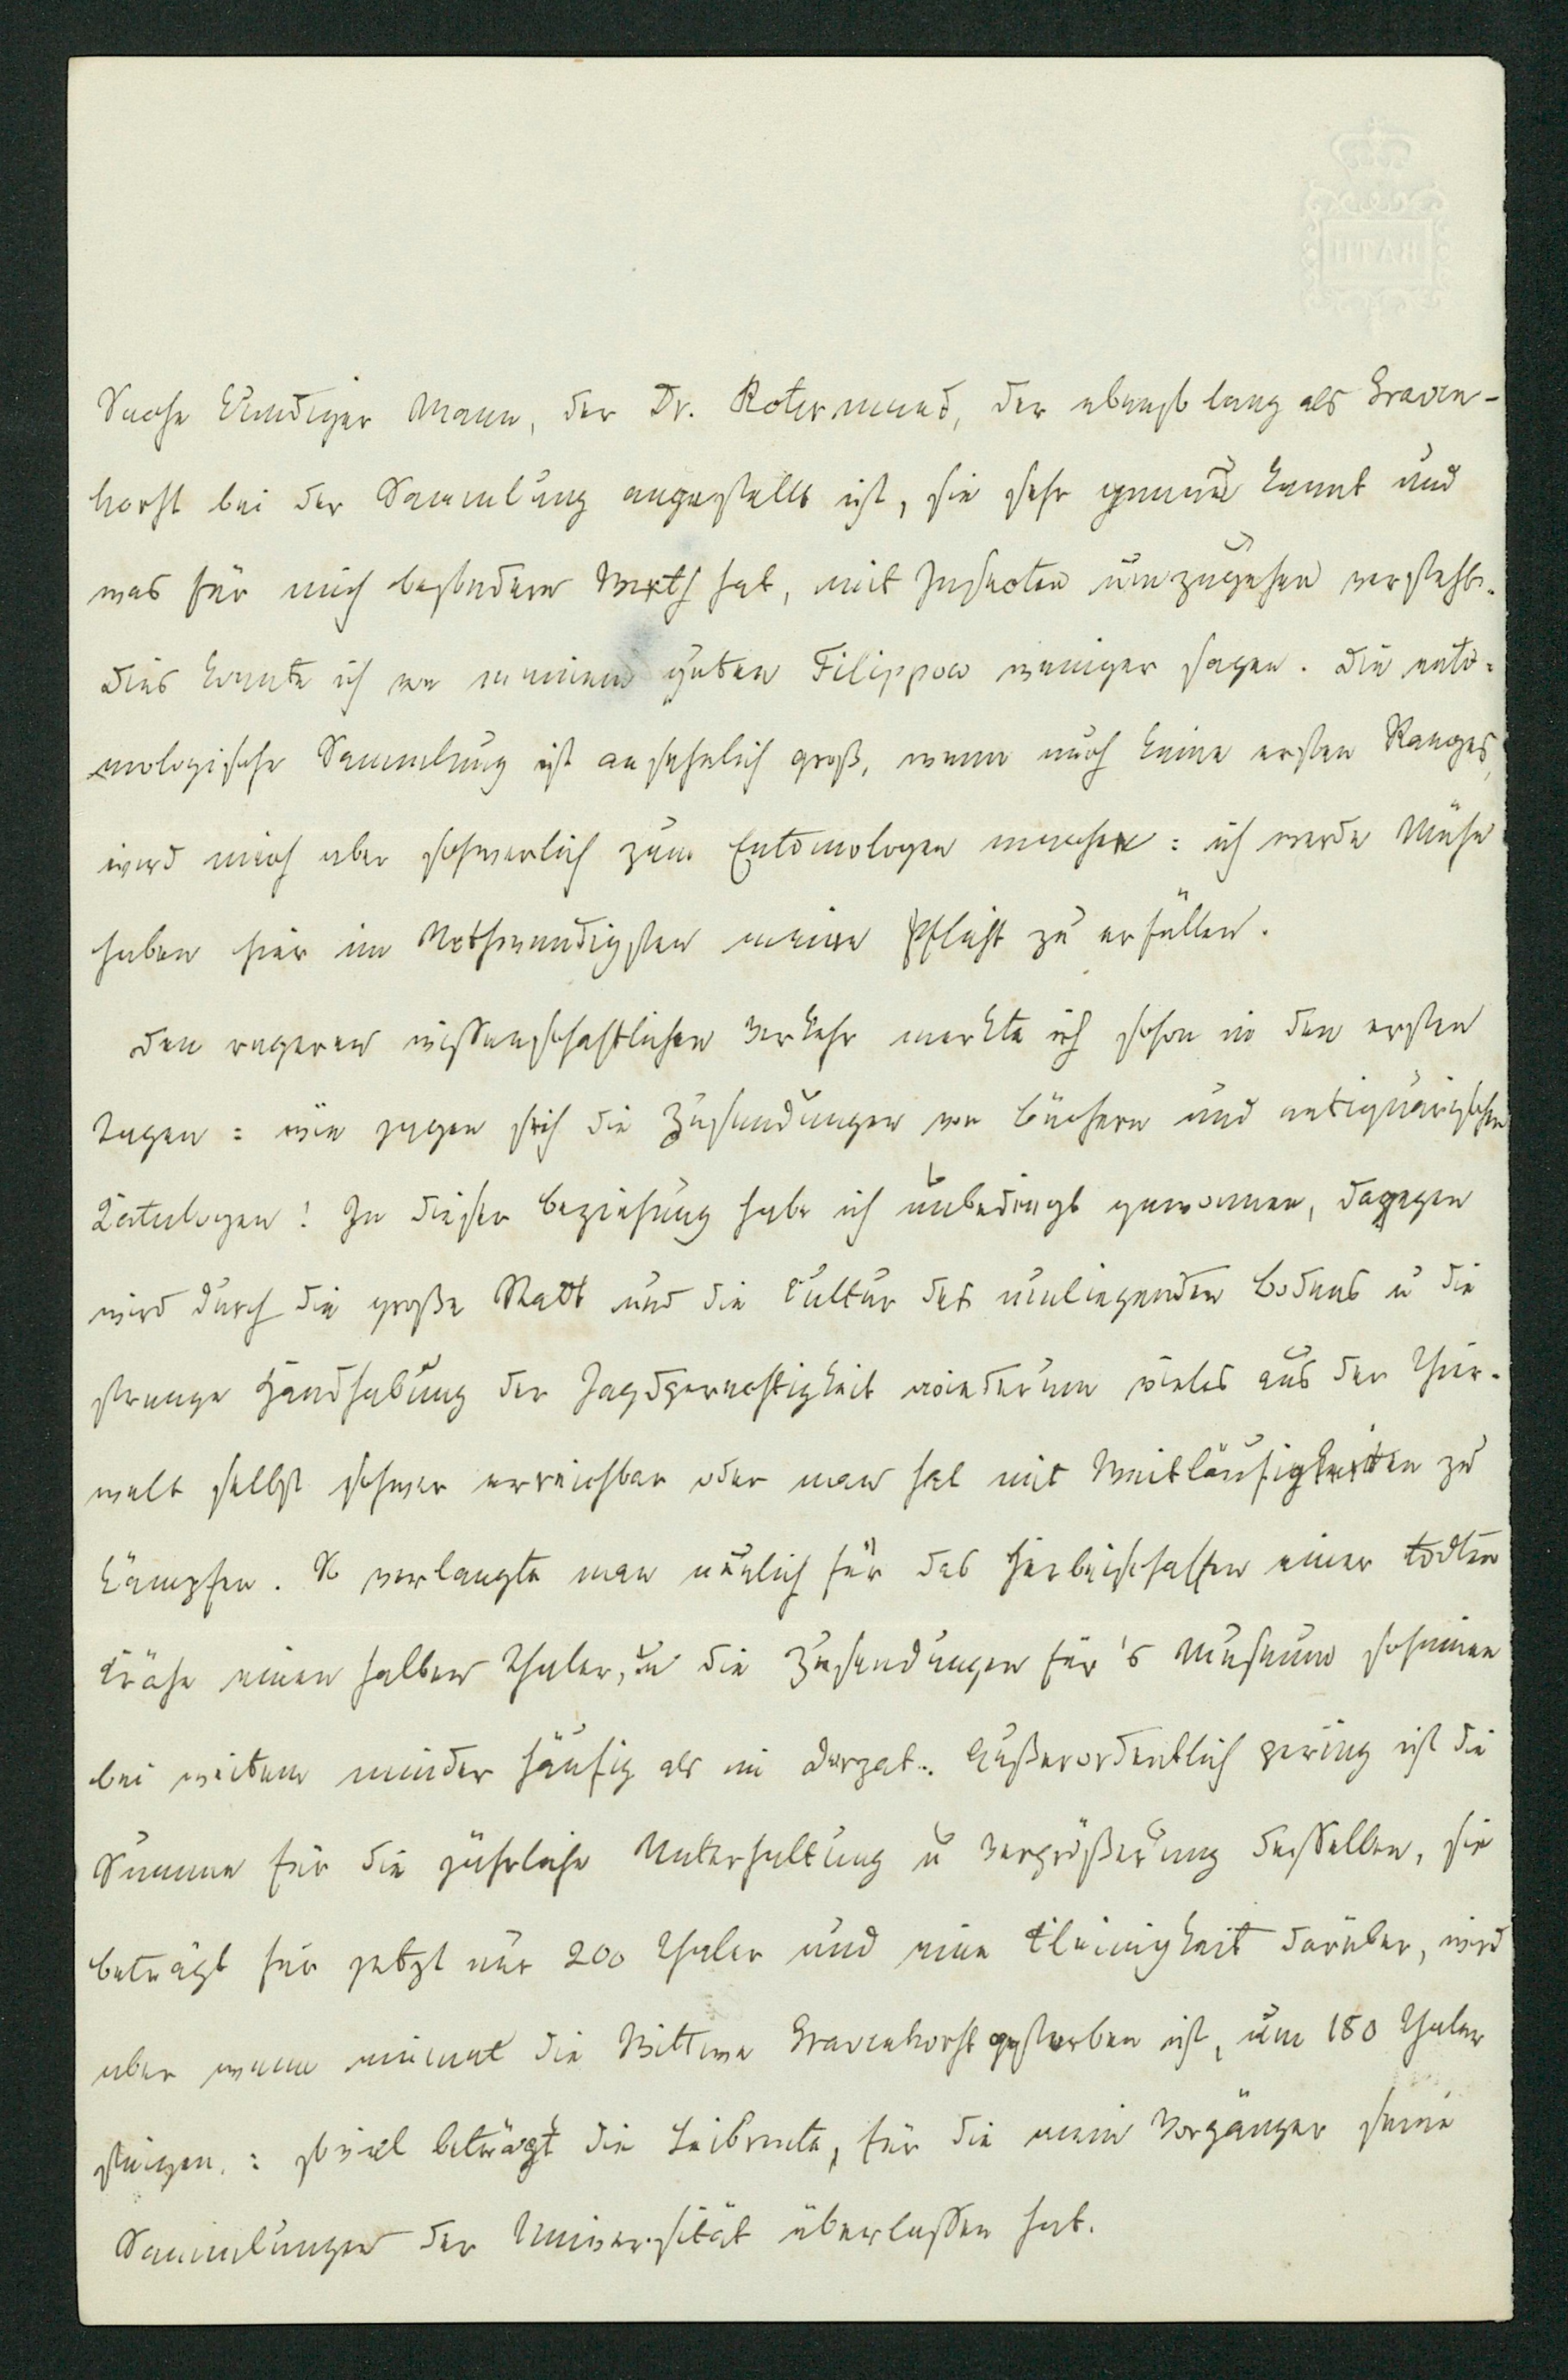 Sache kundiger Mann, der Dr. Rotermund, der ebenso lang als Graven-
horst bei der Sammlung angestellt ist, sie sehr genau kennt und
was für mich besondern Werth hat, mit Insecten umzugehen versteht.
Dies konnte ich von meinem guten Filippow weniger sagen. Die ento-
mologische Sammlung ist ansehnlich groß, wenn auch keine ersten Ranges,
wird mich aber schwerlich zum Entomologen machen: ich werde Mühe
haben hier im Nothwendigsten meine Pflicht zu erfüllen.
Den regeren wissenschaftlichen Verkehr merkte ich schon in den ersten
Tagen: wie jagen sich die Zusendungen von Büchern und antiquarischen
Catalogen! In dieser Beziehung habe ich unbedingt gewonnen, dagegen
wird durch die große Stadt und die Cultur des umliegenden Bodens u die
strenge Handhabung der Jagdgerechtigkeit wiederum vieles aus der Thier-
welt selbst schwer erreichbar oder man hat mit Weitläufigkeiten zu
kämpfen. So verlangte man neulich für das Herbeischaffen einer todten
Krähe einen halben Thaler, u die Zusendungen für's Museum scheinen
bei weitem minder häufig als in Dorpat. Außerordentlich gering ist die
Summe für die jährliche Unterhaltung u Vergrößerung desselben, sie
beträgt für jetzt nur 200 Thaler und eine Kleinigkeit darüber, wird
aber wenn einmal die Wittwe Gravenhorst gestorben ist, um 180 Thaler
steigen: soviel beträgt die Leibrente, für die mein Vorgänger seine
Sammlungen der Universität überlassen hat.
BATH